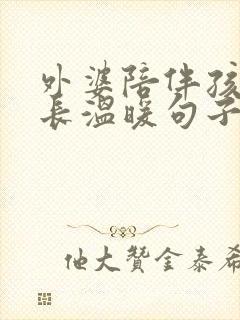 外婆陪伴孩
长温暖句子
他大赞金泰希